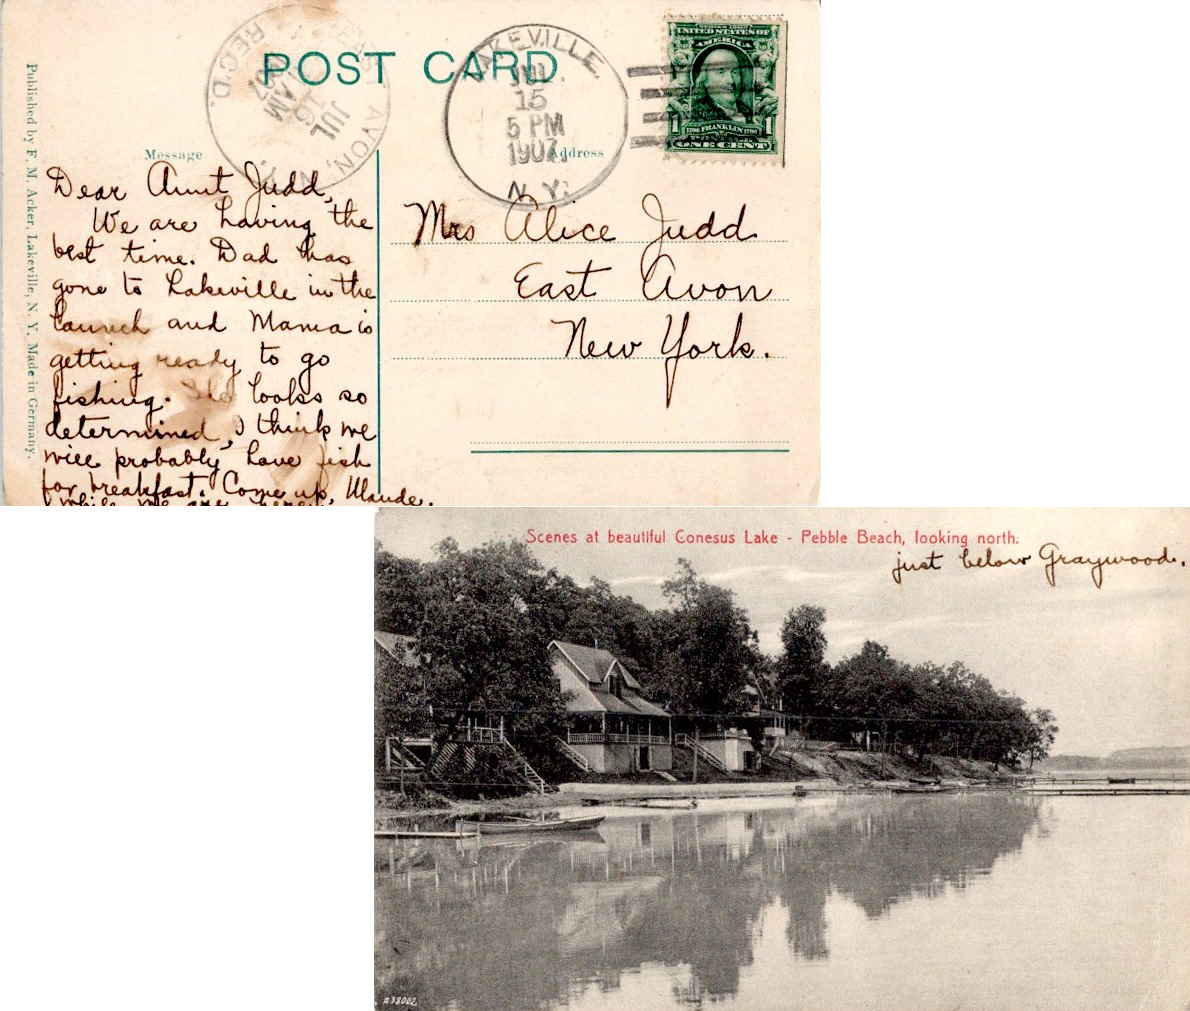 POST CARD
REC'D.
AVON, N.
JUL
16
AM
07
LAKEVILLE.
JUL
15
5 PM
1907.
N.Y.
SERIES 1902
UNITED STATES OF
AMERICA
1 1706 FRANKLIN 1790 1
ONE CENT
Published by F. M. Acker, Lakeville, N. Y. Made in Germany.
Message
Address
Dear Aunt Judd,
We are having the
best time. Dad has
gone to Lakeville in the
launch and Mama is
getting ready to go
fishing. She looks so
determined, I think we
will probably have fish
for breakfast. Come up, Maude.
while we are here
Mrs Alice Judd
East Avon
New York.
Scenes at beautiful Conesus Lake - Pebble Beach, looking north.
just below Graywood.
A 38002